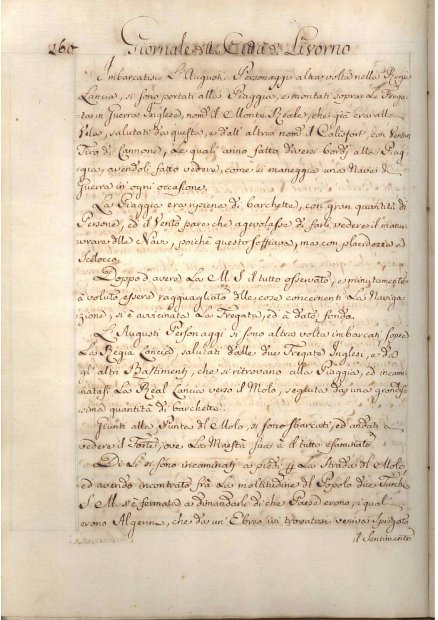 160 Giornale della Città di Livorno
Imbarcatisi L'Augusti Personaggi altra volta nella Regia
Lancia, si sono portati alla Piaggia, e montati sopra la Frega-
ta in Guerra Inglese, nom.ª il Monte Reale, che già era alla
Vela, salutati da questa, e dall'altra nom.ª l'Calisfort, con Ventun
Tiro di Cannone, Le quali anno fatto diversi bordi alla Piag-
gia, avendoli fatto vedere, come si maneggia una Nave di
Guerra in ogni occasione.
La Piaggia era ripiena di barchette, con gran quantità di
Persone, ed il Vento pare che agevolasse di farli vedere il manu-
vrare delle Navi, poiché questo soffiava, ma con placidezza a
Scilocco.
Doppo d'avere La M. S. il tutto osservato, e minutamente
à voluto essere ragguagliato delle cose concernenti La Naviga-
zione, si è avvicinata La Fregata, ed à dato fondo.
L'Augusti Personaggi si sono altra volta imbarcati sopra
La Regia Lancia, salutati dalle due Fregate Inglesi, e da
gl'altri Bastimenti, che si ritrovano alla Piaggia, ed incam-
natasi La Real Lancia verso il Molo, seguita da una grandis-
sima quantità di barchette.
Giunti alla Punta del Molo, si sono sbarcati, ed andati a
vedere il Forte, ove La Maestà Sua à il tutto esaminato.
Di Lì si sono incaminati a piedi p. La Strada del Molo
ed avendo incontrato frà La moltitudine del Popolo due Turchi
S. M. s'è fermata a dimandarli di che Paese erono, i quali
erono Algerini, che da un'Ebreo ivi trovatosi veniva spiegato
il Sentimento